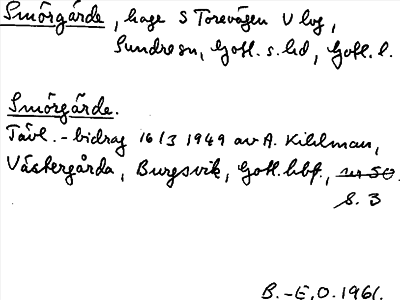 Smörgärde, hage S Torevägen V lvg,
Sundre sn, Gotl. s. hd, Gotl. l.
Smörgärde.
Tävl.-bidrag 16/3 1949 av A. Kihlman,
Västergårda, Burgsvik, Gotl. bbf.,
s. 3
B.-E.O. 1961.